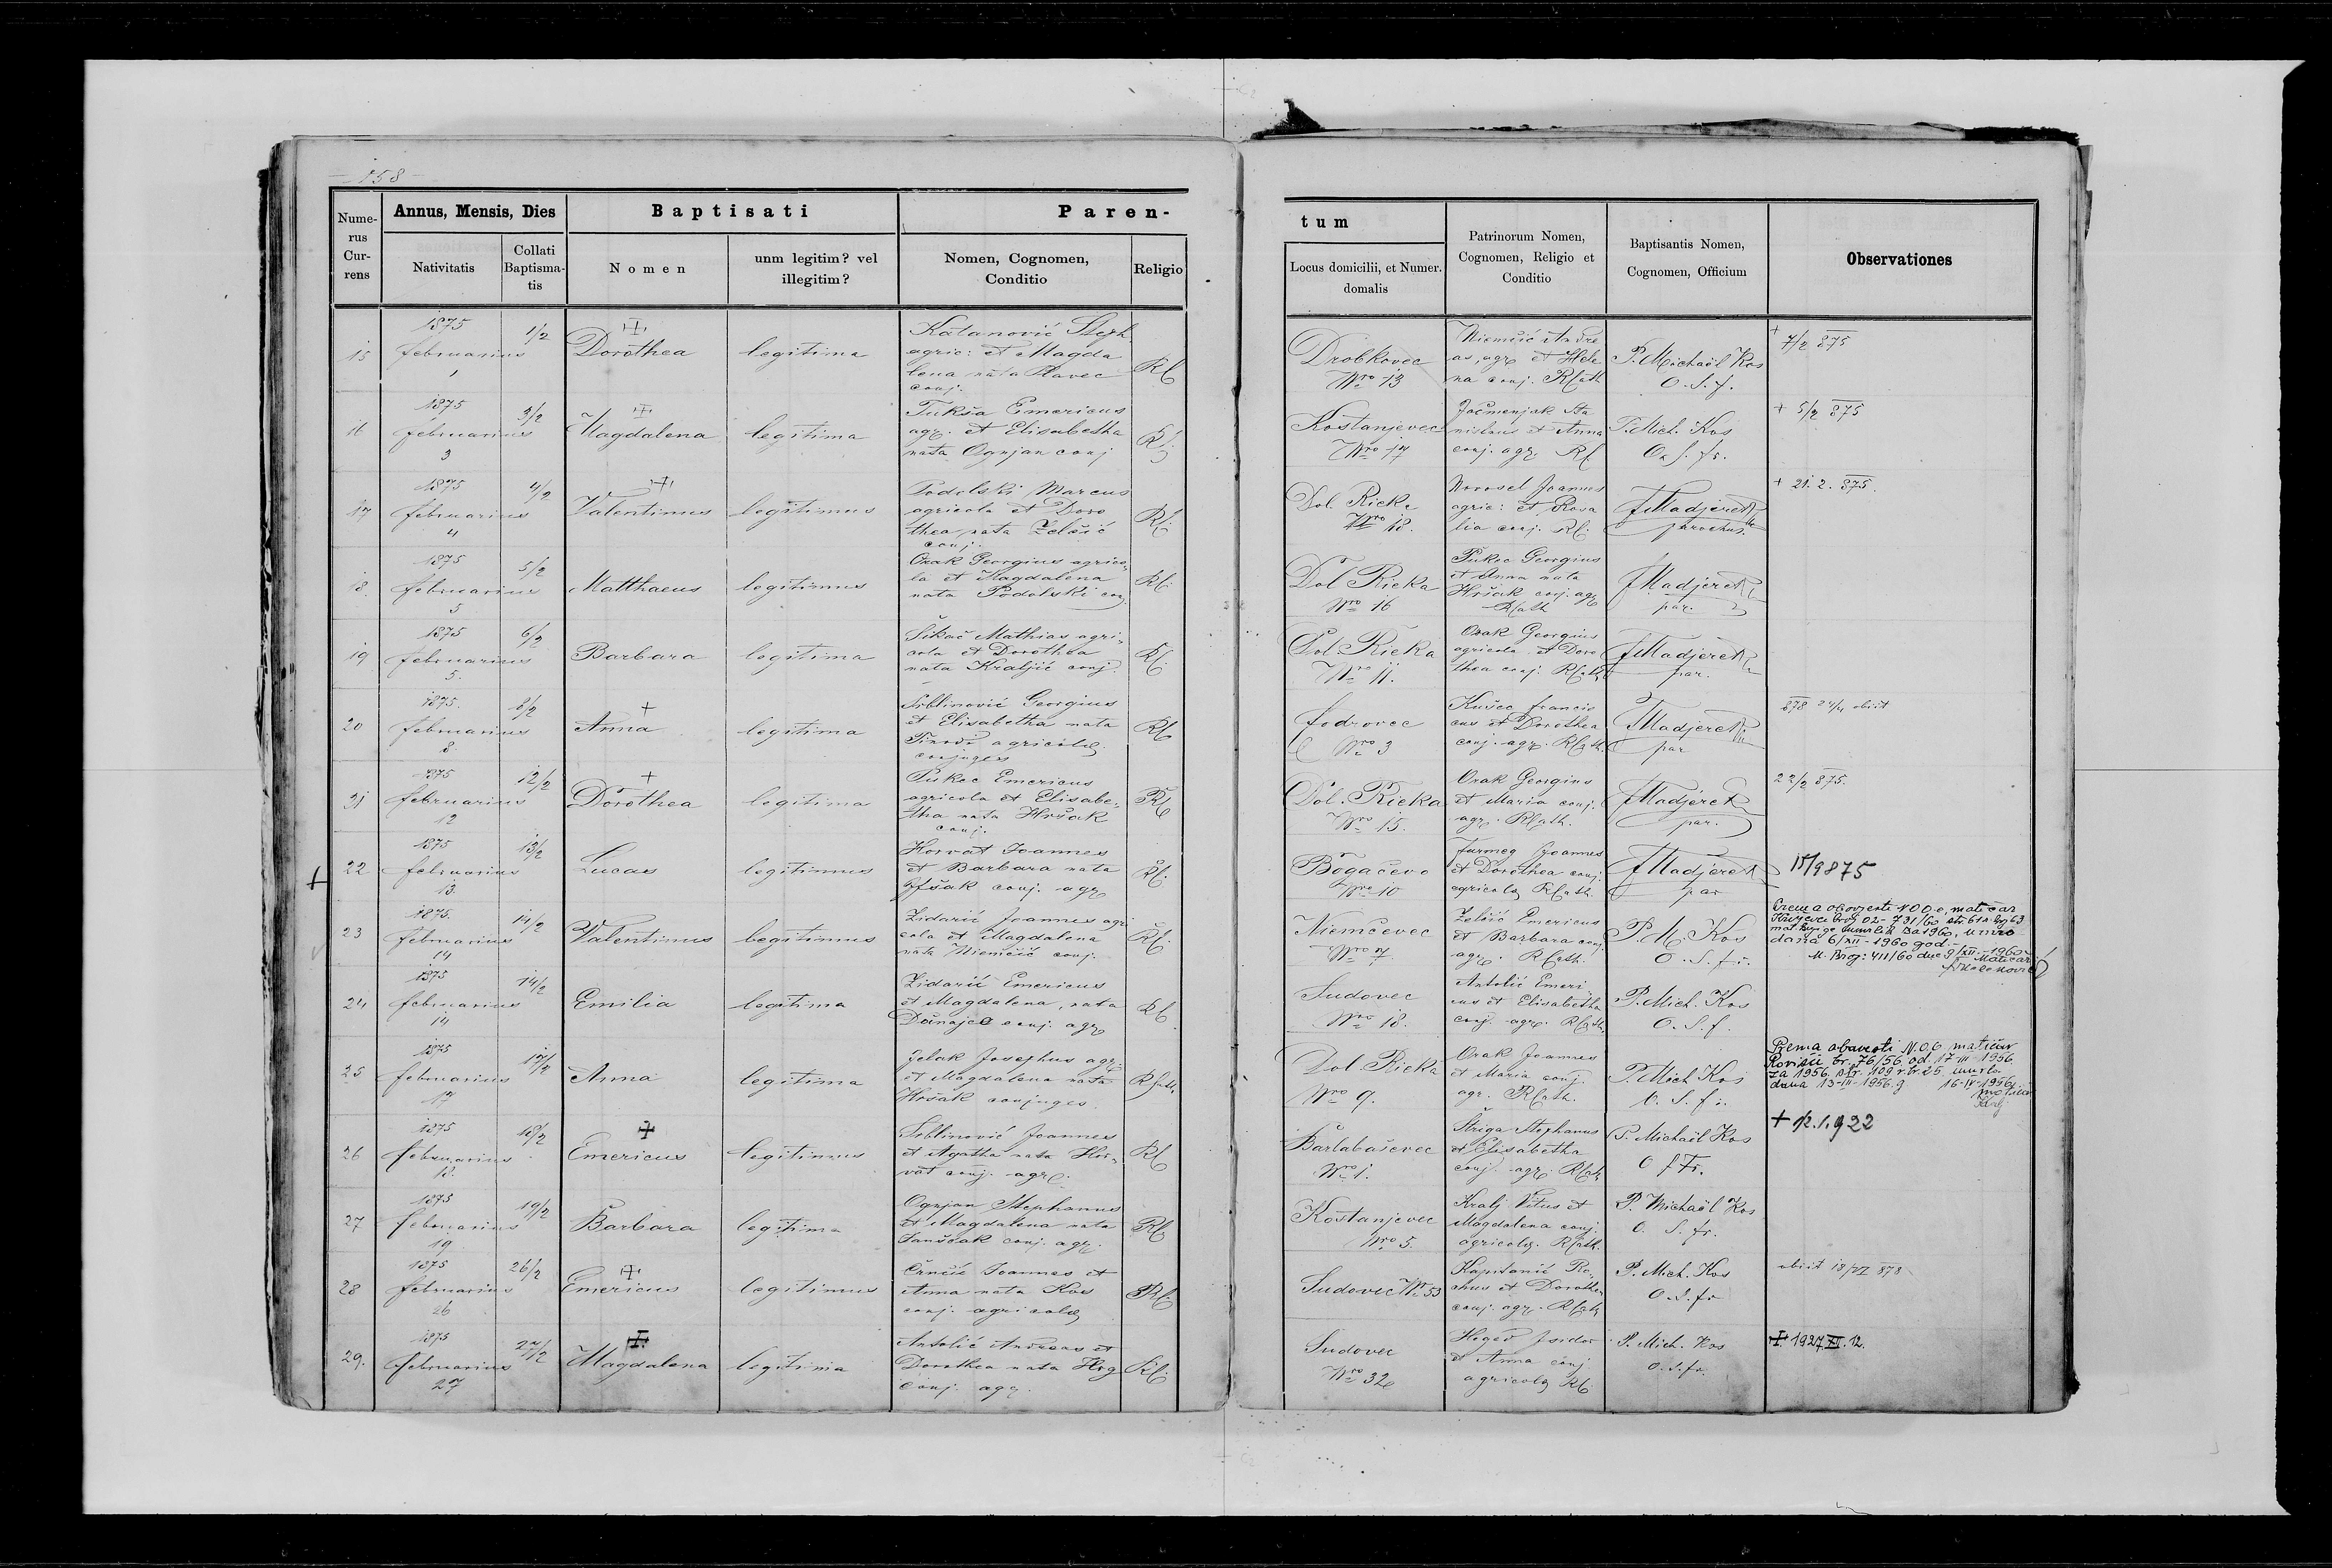 158
Nume-
rus
Cur-
rens
Annus, Mensis, Dies
Nativitatis
Collati
Baptisma-
tis
Baptisati
Nomen
unm legitim? vel
illegitim?
Paren-
Nomen, Cognomen,
Conditio
Religio
tum
Locus domicilii, et Numer.
domalis
Patrinorum Nomen,
Cognomen, Religio et
Conditio
Baptisantis Nomen,
Cognomen, Officium
Observationes
15
1875
februarius
1
1/2
Dorothea
legitima
Katanović Steph
agric: et Magda
lena nata Plavec
conj.
RC
Drobkovec
Nro 13
Niemčić Andre
as, agr. et Hele
na conj. RCath
P. Michaël Kos
O. S. f.
+ 7/2 875
16
1875
februarius
3
3/2
Magdalena
legitima
Tukša Emericus
agr. et Elisabetha
nata Ognjan conj
RC.
Kostanjevec
Nro 17
Jačmenjak Sta
nislaus et Anna
conj. agr. RC
P. Mich. Kos
O. S. fr.
+ 5/2 875
17
1875
februarius
4
4/2
Valentinus
legitimus
Podolski Marcus
agricola et Doro
thea nata Želešić
conj.
RC.
Dol. Rieka
Nro 18.
Novosel Joannes
agric: et Rosa
lia conj. RC.
FMadjereć
parochus.
+ 21. 2. 875.
18.
1875
februarius
5
5/2
Matthaeus
legitimus
Orak Georgius agrico
la et Magdalena
nata Podolski conj.
RC.
Dol. Rieka
Nro 16
Pukec Georgius
et Anna nata
Hršak conj. agr
RCath
FMadjereć
par.
19
1875
februarius
5.
6/2
Barbara
legitima
Šikač Mathias agri-
cola et Dorothea
nata Kraljić conj.
RC.
Dol. Rieka
Nro 11.
Orak Georgius
agricola et Doro
thea conj. RCath
FMadjereć
par.
20
1875.
februarius
8.
8/2
+
Anna
legitima
Srblinović Georgius
et Elisabetha nata
Tinodi agricolae
conjuges
RC
Fodrovec
Nro 3
Kušec Francis
cus et Dorothea
conj. agr. RCath.
FMadjereć
par
878 24/4 obiit
21
1875
februarius
12
12/2
+
Dorothea
legitima
Pukec Emericus
agricola et Elisabe-
tha nata Hršak
conj.
RC
Dol. Rieka
Nro 15.
Orak Georgius
et Maria conj.
agr. RCath.
FMadjereć
par.
22/2 875.
+ 22
1875
februarius
13
13/2
Lucas
legitimus
Horvat Joannes
et Barbara nata
conj. agr
RC.
Bogačevo
Nro 10
Furmeg Joannes
et Dorothea conj.
agricolae RCath
FMadjereć
par
15/9 875
23
1875.
februarius
14
14/2
Valentinus
legitimus
Zidarić Joannes agri
cola et Magdalena
nata Niemčić conj.
RC.
Niemčevec
Nro 7.
Zelšić Emericus
et Barbara conj.
agr. RCath.
P. M. Kos
O. S. fr.
Prema obavjesti NOO-e, matičar
Križevci broj 02-731/60 str. 61 r. br. 63
mat. knjige umrlih za 1960, umro
dana 6/XII-1960 god.-
M. Broj: 411/60 dne 9/XII-1960
Matičar:
24
1875
februarius
14
14/2
Emilia
legitima
Zidarić Emericus
et Magdalena, nata
Dunajec conj. agr
RC.
Sudovec
Nro 18.
Antolić Emeri-
cus et Elisabetha
conj. agr. RCath.
P. Mich. Kos
O. S. f.
25
1875
februarius
17
17/2
Anna
legitima
Jelak Josephus agr.
et Magdalena nata
Hršak conjuges
RCath.
Dol. Rieka
Nro 9.
Orak Joannes
et Maria conj.
agr. RCath.
P. Mich Kos
O. S. fr.
Prema obavesti N.O.O. matičar
Rovišće br. 76/56 od 17-III-1956
za 1956. str. 109 r. br. 25 umrla
dana 13-III-1956. g 16-IV-1956
matičar
26
1875
februarius
18.
18/2
Emericus
legitimus
Srblinović Joannes
et Agatha nata Hor-
vat conj. agr.
RC
Barlabaševec
Nro 1.
Štriga Stephanus
et Elisabetha
conj. agr. RCath
P. Michaël Kos
O f Fr.
+ 12.1.922
27
1875
februarius
19
19/2
Barbara
legitima
Ognjan Stephanus
et Magdalena nata
Janščak conj. agr.
RC
Kostanjevec
Nro 5.
Kralj Vitus et
Magdalena conj.
agricolae. RCath.
P. Michaël Kos
O. S. fr.
28
1875
februarius
26
26/2
Emericus
legitimus
Črnčić Joannes et
Anna nata Kos
conj. agricolae
RC.
Sudovec Nro 53
Kapitanić Ro-
chus et Dorothea
conj. agr. RCath
P. Mich. Kos
O. S. fr
obiit 18/VI 878
29.
1875
februarius
27
27/2
Magdalena
legitima
Antolić Andreas et
Dorothea nata Hrg
conj. agr.
RC.
Sudovec
Nro 32
Hegeš Isidor
et Anna conj
agricolae RC.
P. Mich. Kos
O. S. fr.
+ 1927 XI. 12.